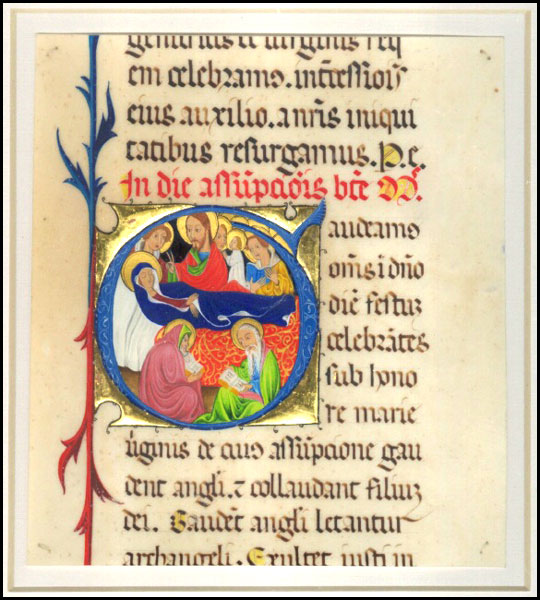 genitricis et uirginis req
em celebramꝰ. intcessiōis
eius auxilio. a nr̄is iniqui
tatibus resurgamus. P. e.
In die assūpciōis bt̄e M.
audeamꝰ
om̄s i dn̄o
diē festuꝫ
celebrātes
sub hono
re marie
uirginis de cuiꝰ assūpcione gau
dent angli. ⁊ collaudant filiuꝫ
dei. Gaudēt angli letantur
archangeli. Exultet iusti in